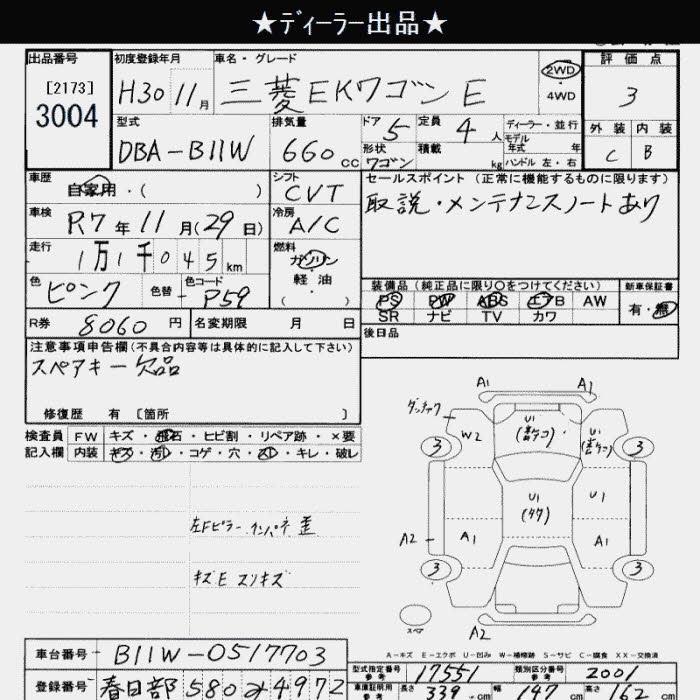 ★ディーラー出品★
出品番号 初度登録年月 車名・グレード 評価点
[2173] 3004 H30 11月 三菱EKワゴン E 2WD 4WD 3
型式 排気量 ドア 5 定員 4人 ディーラー・並行 外装 内装
DBA-B11W 660cc 形状 ワゴン 積載 kg モデル年式 年 ハンドル 左・右 C B
車歴 自家用・( ) シフト CVT セールスポイント(正常に機能するものに限ります)
車検 R7年11月(29日) 冷房 A/C 取説・メンテナンスノートあり
走行 1万1千045km 燃料 ガソリン・軽油 ( )
色 ピンク 色替 - 色コード P59 装備品(純正品に限り○をつけてください) 新車保証書
PS PW ABS エアB AW 有・無
SR ナビ TV カワ
R券 8060円 名変期限 月 日 後日品
注意事項申告欄(不具合内容等は具体的に記入して下さい)
スペアキー欠品
修復歴 有 [箇所 ]
検査員 FW キズ・飛石・ヒビ割・リペア跡・×要
記入欄 内装 キズ・汚れ・コゲ・穴・スレ・キレ・破レ
左Fピラー インパネ 歪
キズE スリキズ
A1 A1
W2 U1 U1
3 3
U1 U1
A2 A1 A1
3 3
スペア A2
A-キズ E-エクボ U-凹み W-補修跡 S-サビ C-腐食 XX-交換済
車台番号 B11W-0517703
型式指定番号 参考 17551 類別区分番号 参考 2001
登録番号 春日部 580 み 4972
車庫証明用 参考 長さ 339cm 幅 147cm 高さ 162cm